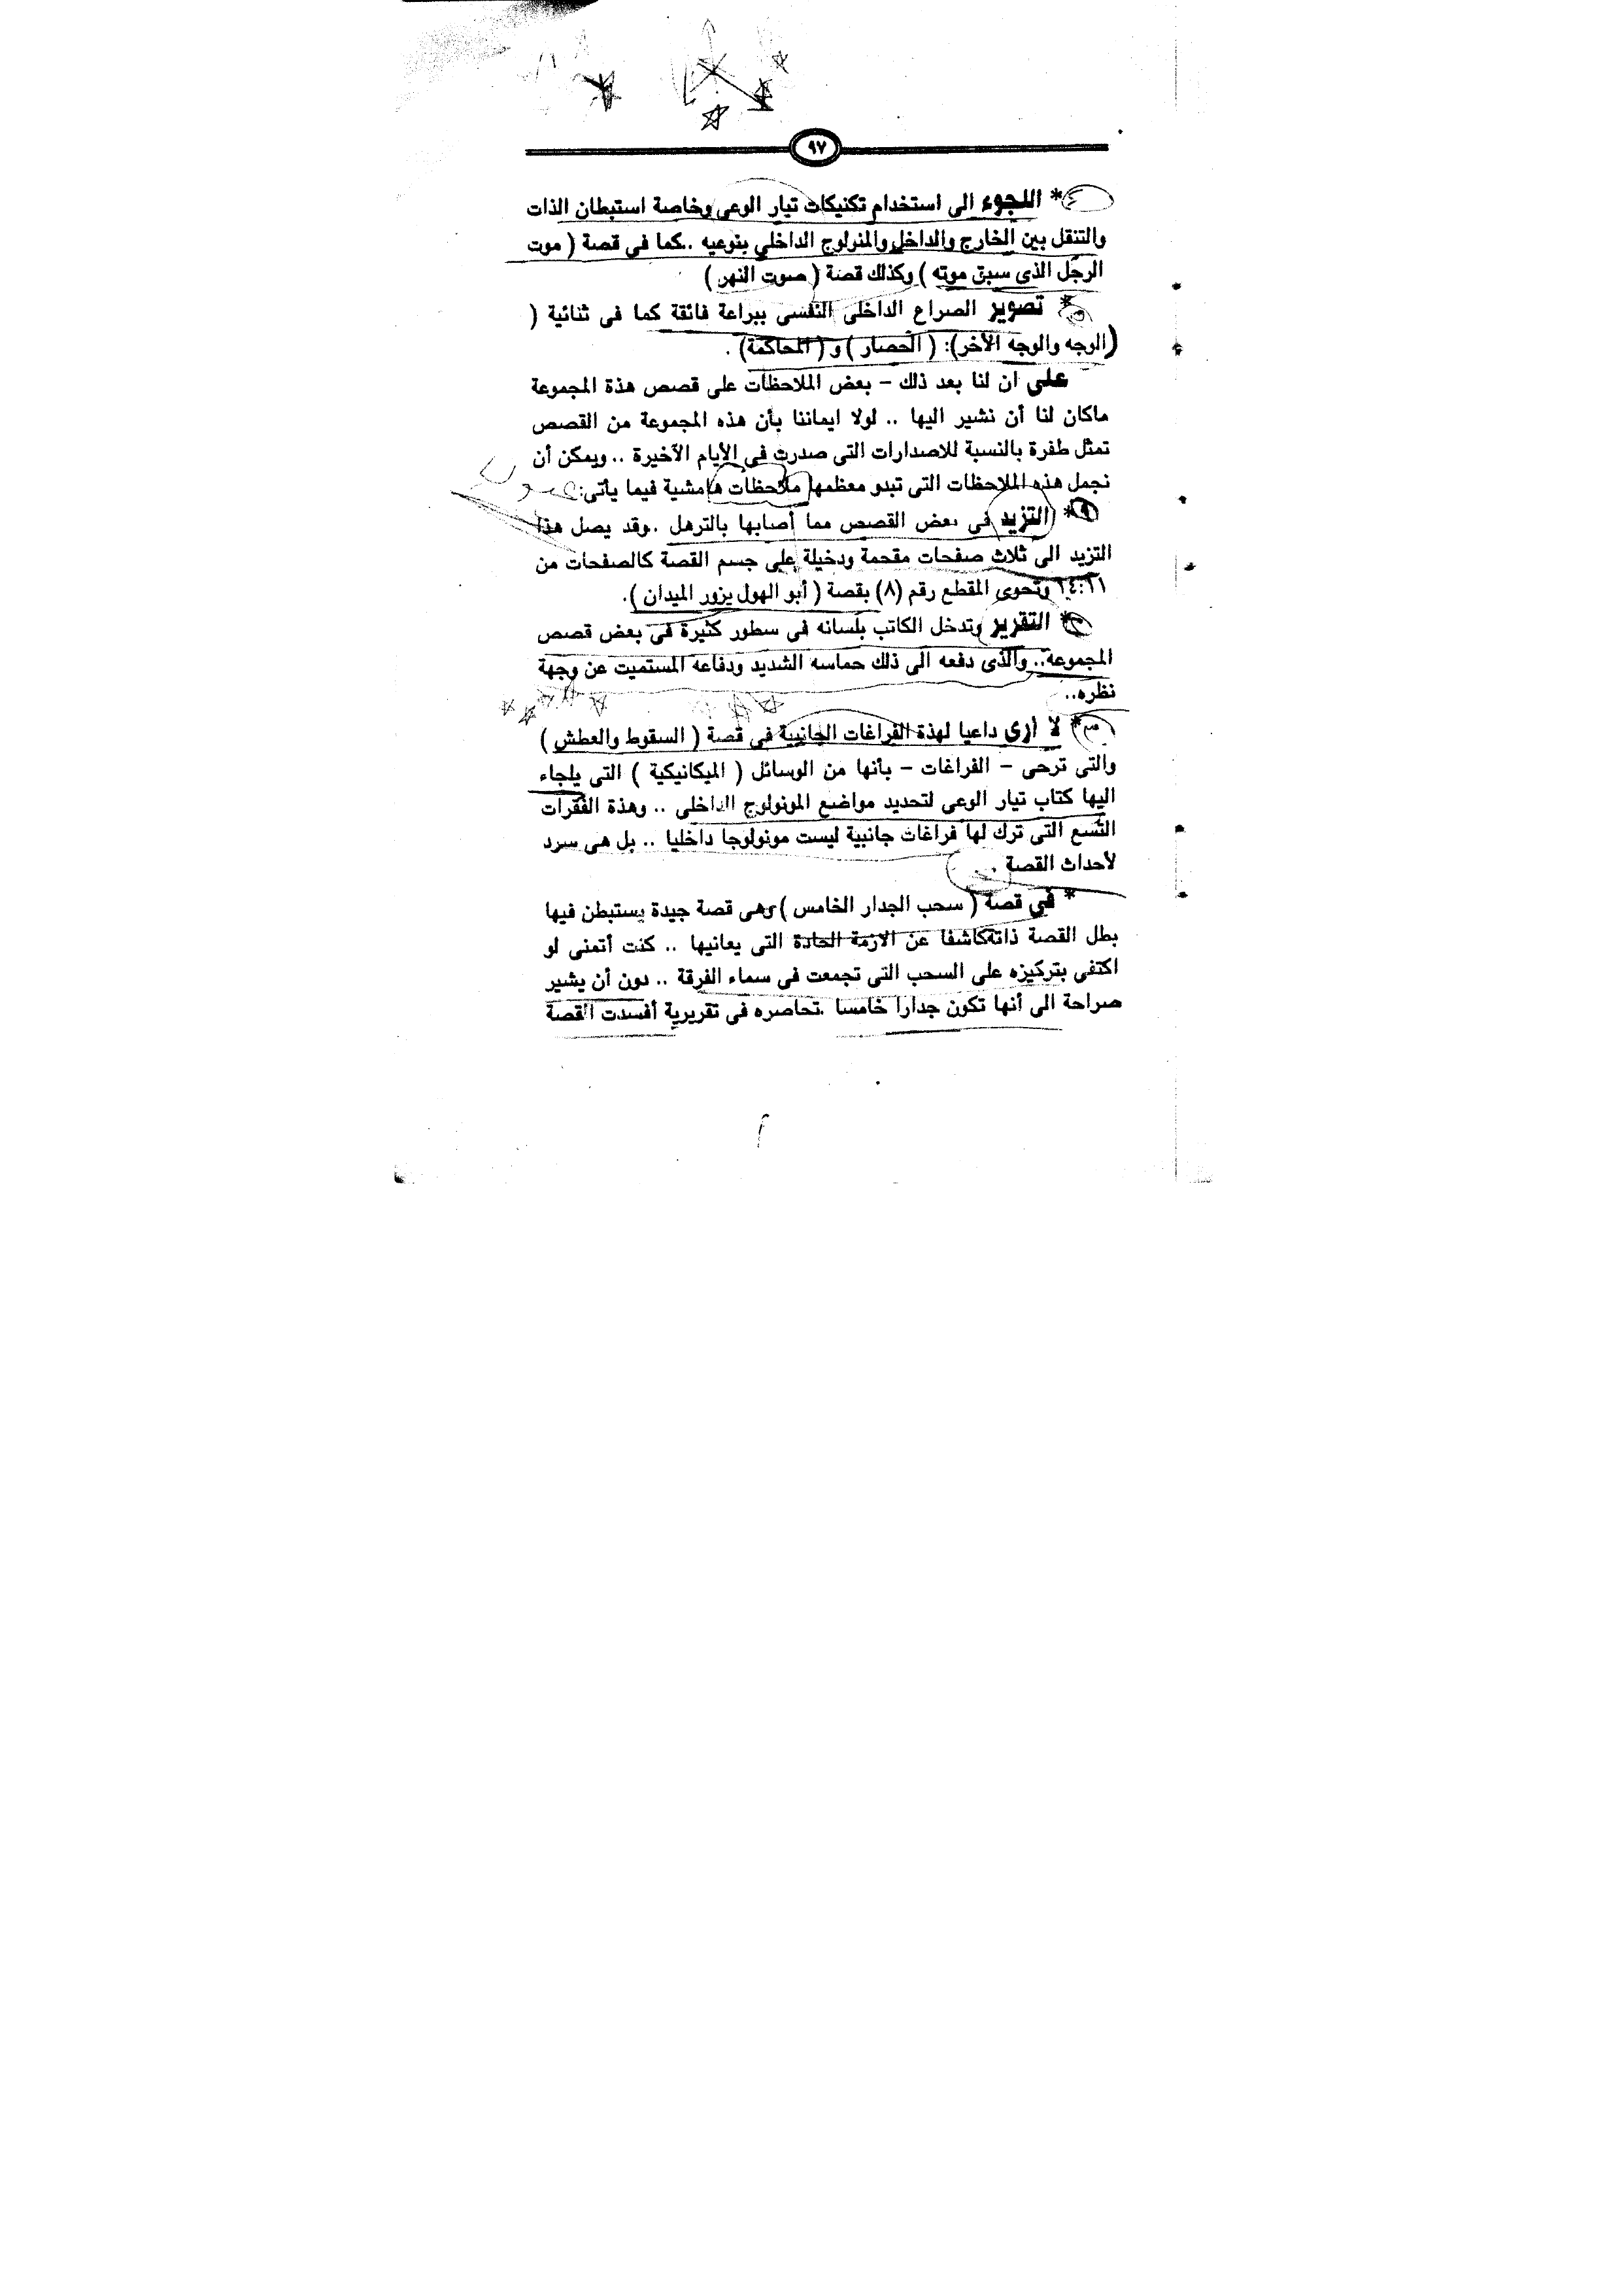 ٩٧
* اللجوء الى استخدام تكنيكات تيار الوعى وخاصة استبطان الذات
والتنقل بين الخارج والداخل والمنولوج الداخلي بنوعيه ..كما فى قصة ( موت
الرجل الذى سبق موته ) وكذلك قصة ( صوت النهر )
* تصوير الصراع الداخلى النفسى ببراعة فائقة كما فى ثنائية (
(الوجه والوجه الآخر): ( الحصار ) و ( المحاكمة) .
على ان لنا بعد ذلك – بعض الملاحظات على قصص هذة المجموعة
ماكان لنا أن نشير اليها .. لولا ايماننا بأن هذه المجموعة من القصص
تمثل طفرة بالنسبة للاصدارات التى صدرت فى الأيام الآخيرة .. ويمكن أن
نجمل هذه الملاحظات التى تبدو معظمها ملاحظات هامشية فيما يأتى:
عيوب
١ * التزيد فى بعض القصص مما أصابها بالترهل ..وقد يصل هذا
التزيد الى ثلاث صفحات مقحمة ودخيلة على جسم القصة كالصفحات من
١٤:١١ وتحوى المقطع رقم (٨) بقصة ( أبو الهول يزور الميدان ).
* التقرير وتدخل الكاتب بلسانه فى سطور كثيرة فى بعض قصص
المجموعة.. والذى دفعه الى ذلك حماسه الشديد ودفاعه المستميت عن وجهة
نظره..
* لا أرى داعيا لهذة الفراغات الجانبية فى قصة ( السقوط والعطش )
والتى ترحى – الفراغات – بأنها من الوسائل ( الميكانيكية ) التى يلجاء
اليها كتاب تيار الوعى لتحديد مواضع المونولوج الداخلى .. وهذة الفقرات
التسع التى ترك لها فراغات جانبية ليست مونولوجا داخليا .. بل هى سرد
لأحداث القصة .
* في قصة ( سحب الجدار الخامس ) وهى قصة جيدة يستبطن فيها
بطل القصة ذاتةكاشفا عن الازمة الحادة التى يعانيها .. كنت أتمنى لو
اكتفى بتركيزه على السحب التى تجمعت فى سماء الفرقة .. دون أن يشير
صراحة الى أنها تكون جدارا خامسا .تحاصره فى تقريرية أفسدت القصة